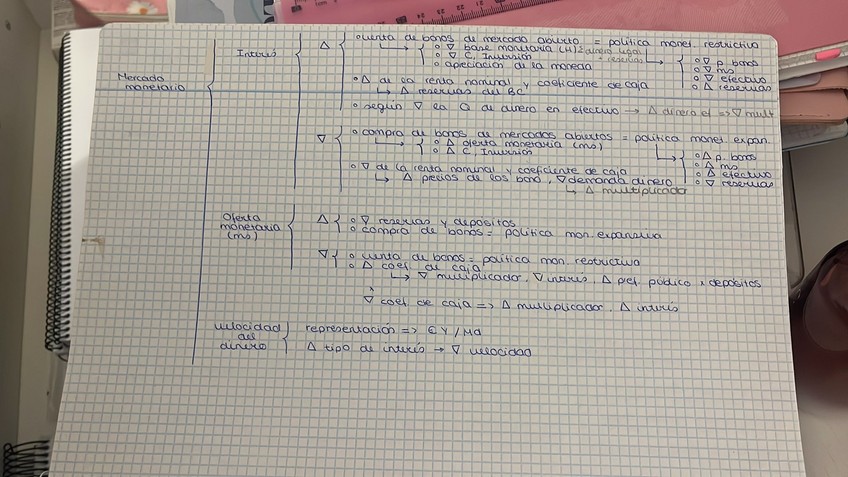 Mercado monetario
Interés
Δ
o venta de bonos de mercado abierto = política monet. restrictiva
o ∇ base monetaria (H)
o ∇ C, Inversión
o apreciación de la moneda
o ∇ p. bonos
o ∇ ms
o ∇ efectivo
o Δ reservas
o Δ de la renta nominal y coeficiente de caja
↳ Δ reservas del BC
o según ∇ la Q de dinero en efectivo → Δ dinero ef => ∇ mult
∇
o compra de bonos de mercados abiertos = política monet. expan.
o Δ oferta monetaria (ms)
o Δ C, Inversión
o Δ p. bonos
o Δ ms
o Δ efectivo
o ∇ reservas
o ∇ de la renta nominal y coeficiente de caja
↳ Δ precios de los bono, ∇ demanda dinero
↳ Δ multiplicador
Oferta monetaria (ms)
Δ
o ∇ reservas y depósitos
o compra de bonos = política mon. expansiva
∇
o venta de bonos = política mon. restrictiva
o Δ coef. de caja
↳ ∇ multiplicador, ∇ interés, Δ pref. público x depósitos
∇ coef. de caja => Δ multiplicador, Δ interés
velocidad del dinero
representación => € Y / Md
Δ tipo de interés → ∇ velocidad